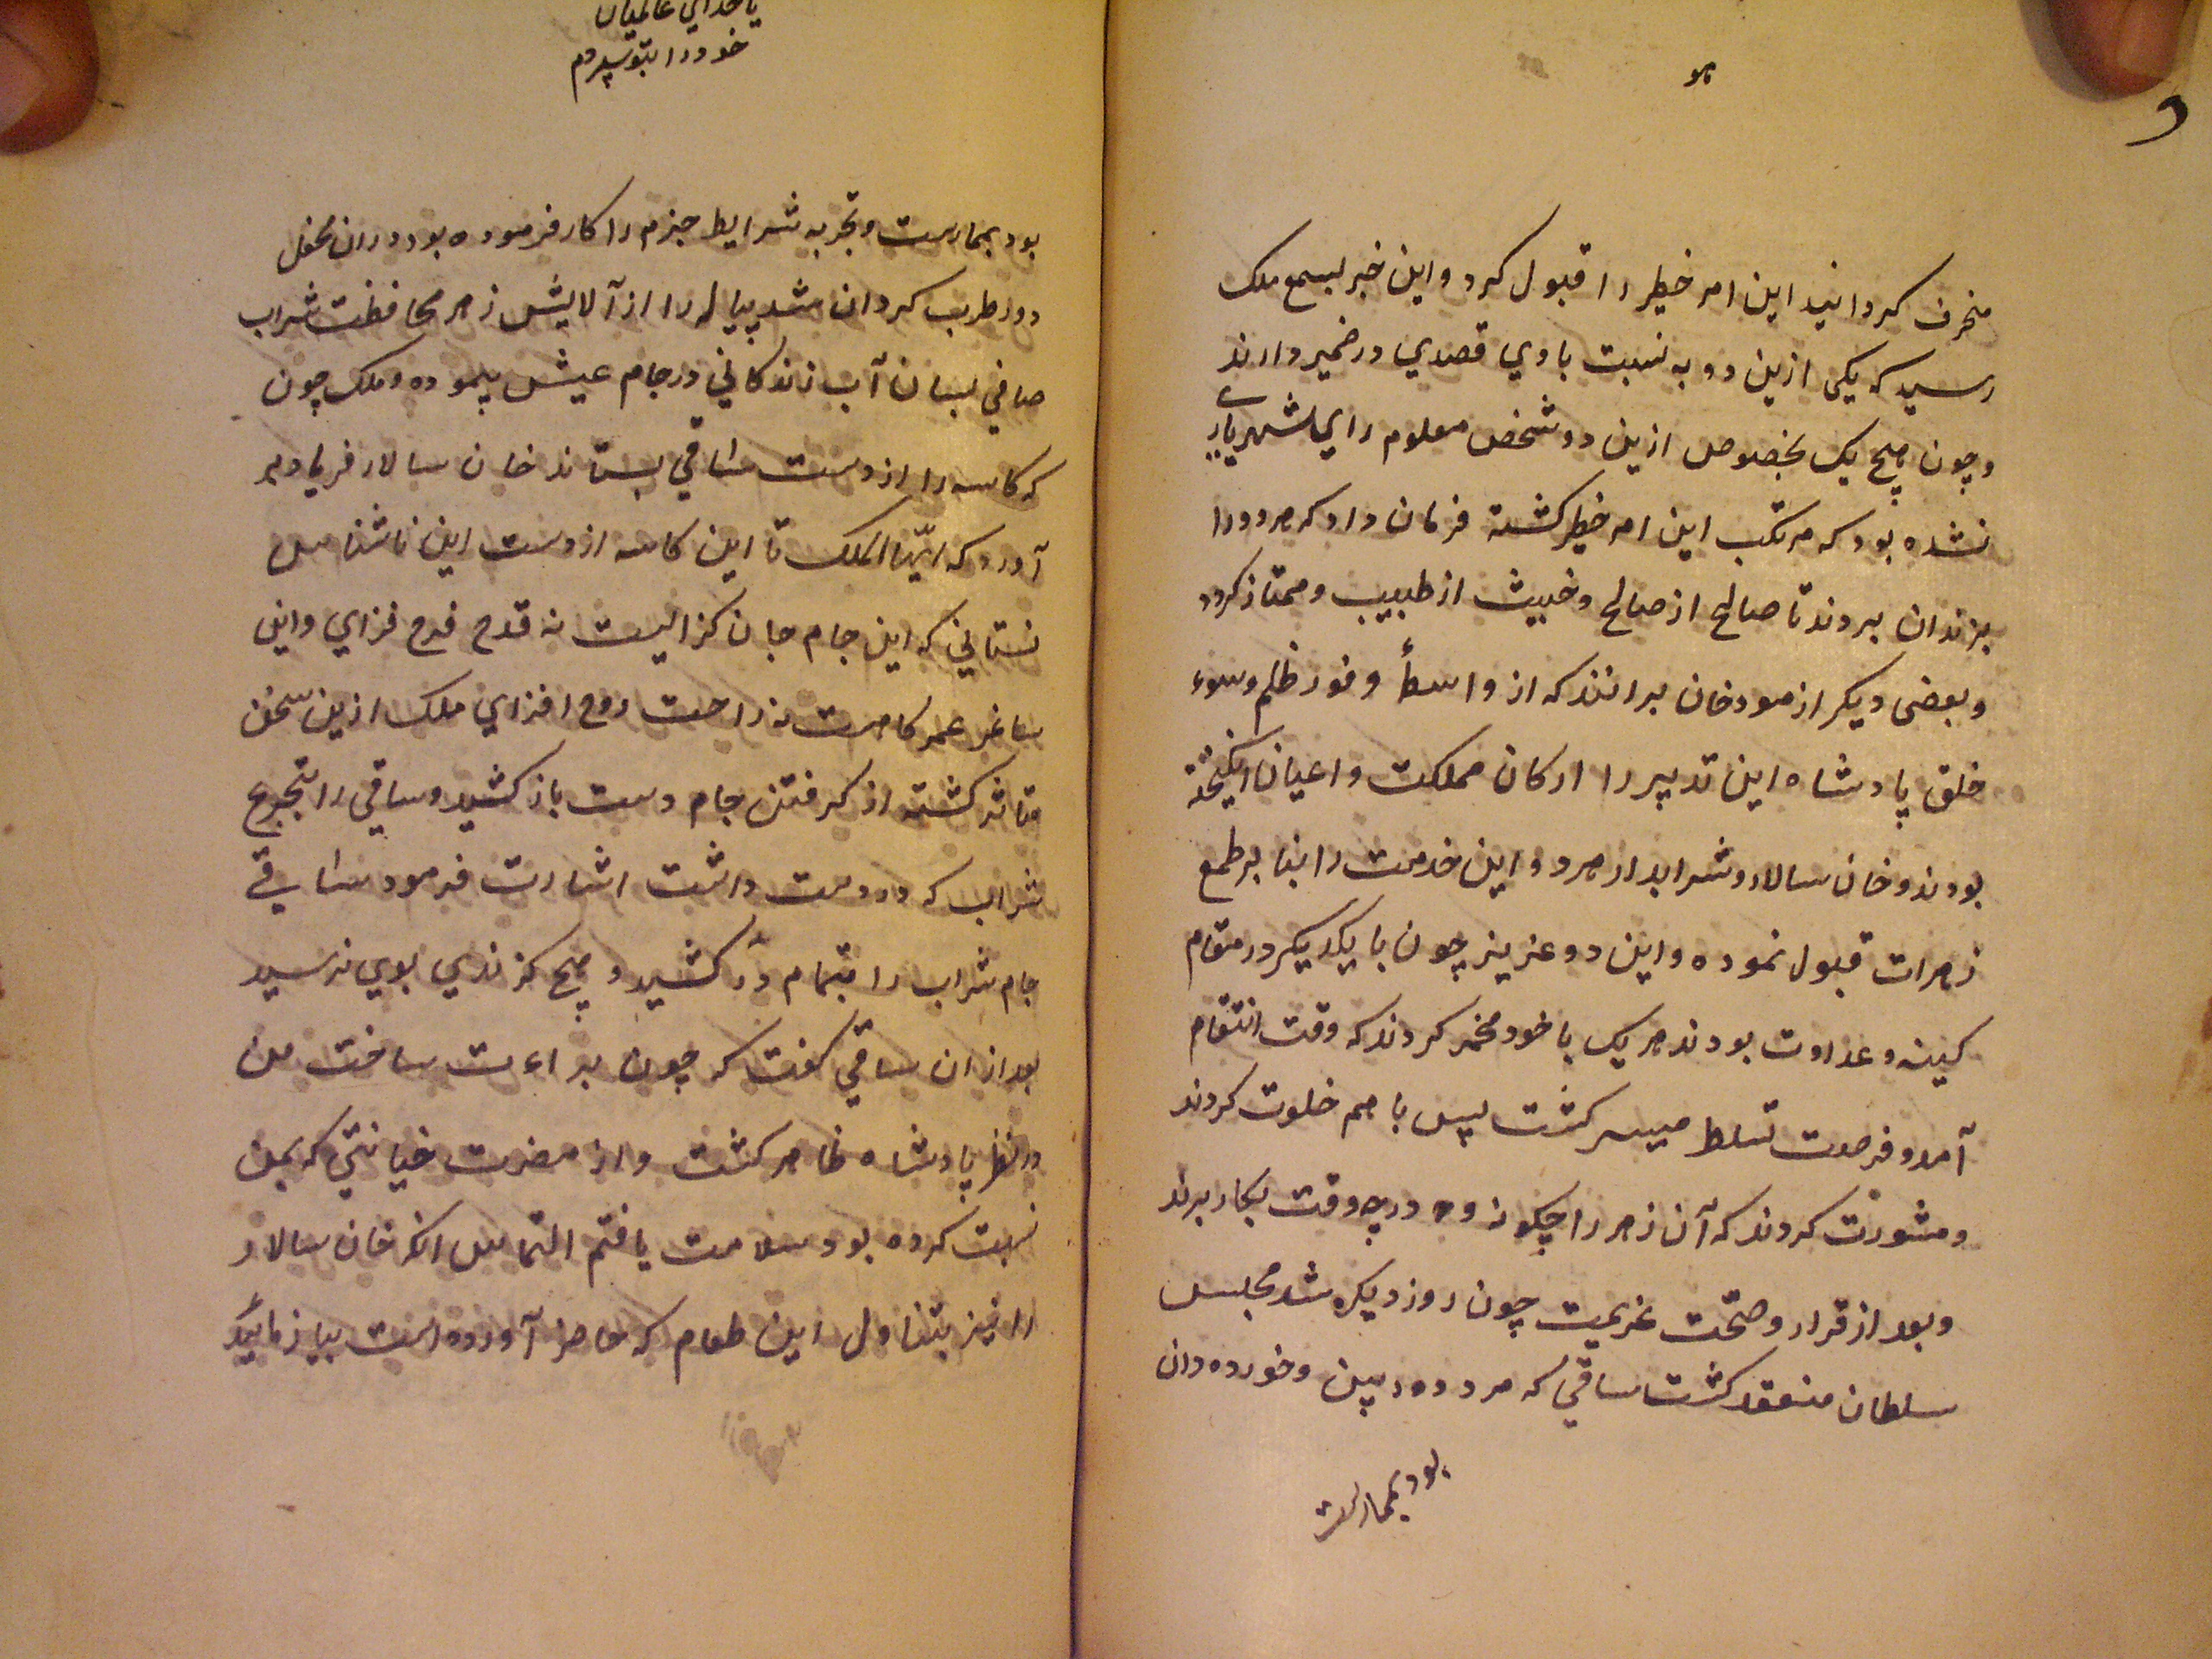 منحرف کردانید این امر خطیر را قبول کرد و این خبر بسمع ملک
رسید که یکی ازین دو به نسبت باوي قصدي در ضمیر دارند
و چون هیچ یک بخصوص ازین دو شخص معلوم راي شهریاري
نشده بود که مرتکب این امر خطیر کشته فرمان داد که هر دورا
بزندان بردند تا صالح از طالح و خبیث از طیب و ممتاز کردد
و بعضی دیکر از مورخان برانند که از واسطهٔ وفور ظلم و سوء
خلق پادشاه این تدبیر را ارکان مملکت و اعیان انکیخته
بودند و خان سالار و شرابدار هر دو این خدمت را بنا بر طمع
زهرات قبول نموده و این دو عزیز چون با یکدیکر در مقام
کینه و عداوت بودند هر یک با خود مخمر کردند که وقت انتقام
آمد و فرصت تسلط میسر کشت پس با هم خلوت کردند
و مشورت کردند که آن زهر را چکونه و در چه وقت بکار برند
و بعد از قرار و صحّت عزیمت چون روز دیکر شد مجلس
سلطان منعقد کشت ساقي که مرد دوربین و خورده دان
بود بممارست
یا خداي عالمیان
خود را بتو سپردم
بود بممارست و تجربه شرایط حزم را کار فرموده بود دران محفل
دور طرب کردان شد پیاله را از آلایش زهر محافظت شراب
صافي بسان آب زندکاني در جام عیش پیموده و ملک چون
که کاسه را از دست ساقي بستاند خان سالار فریاد بر
آورد که ایّها الملک تا این کاسه از دست این ناشناس
نستاني که این جام جان کزاایست نه قدح فرح فزاي و این
ساغر عمر کاهست نه راحت روح افزاي ملک ازین سخن
متاثر کشته از کرفتن جام دست باز کشید و ساقي را بتجرع
شراب که در دست داشت اشارت فرمود ساقے
جام شراب را بتمام در کشید و هیچ کزندي بوي نرسید
بعد از ان ساقي کفت که چون براءت ساخت من
در نظر پادشاه ظاهر کشت و از مضرت خیانتي که بمن
نسبت کرده بود سلامت یافتم التماس انکه خان سالار
را نیز بتناول این طعام که حاضر آورده است بیازمائید